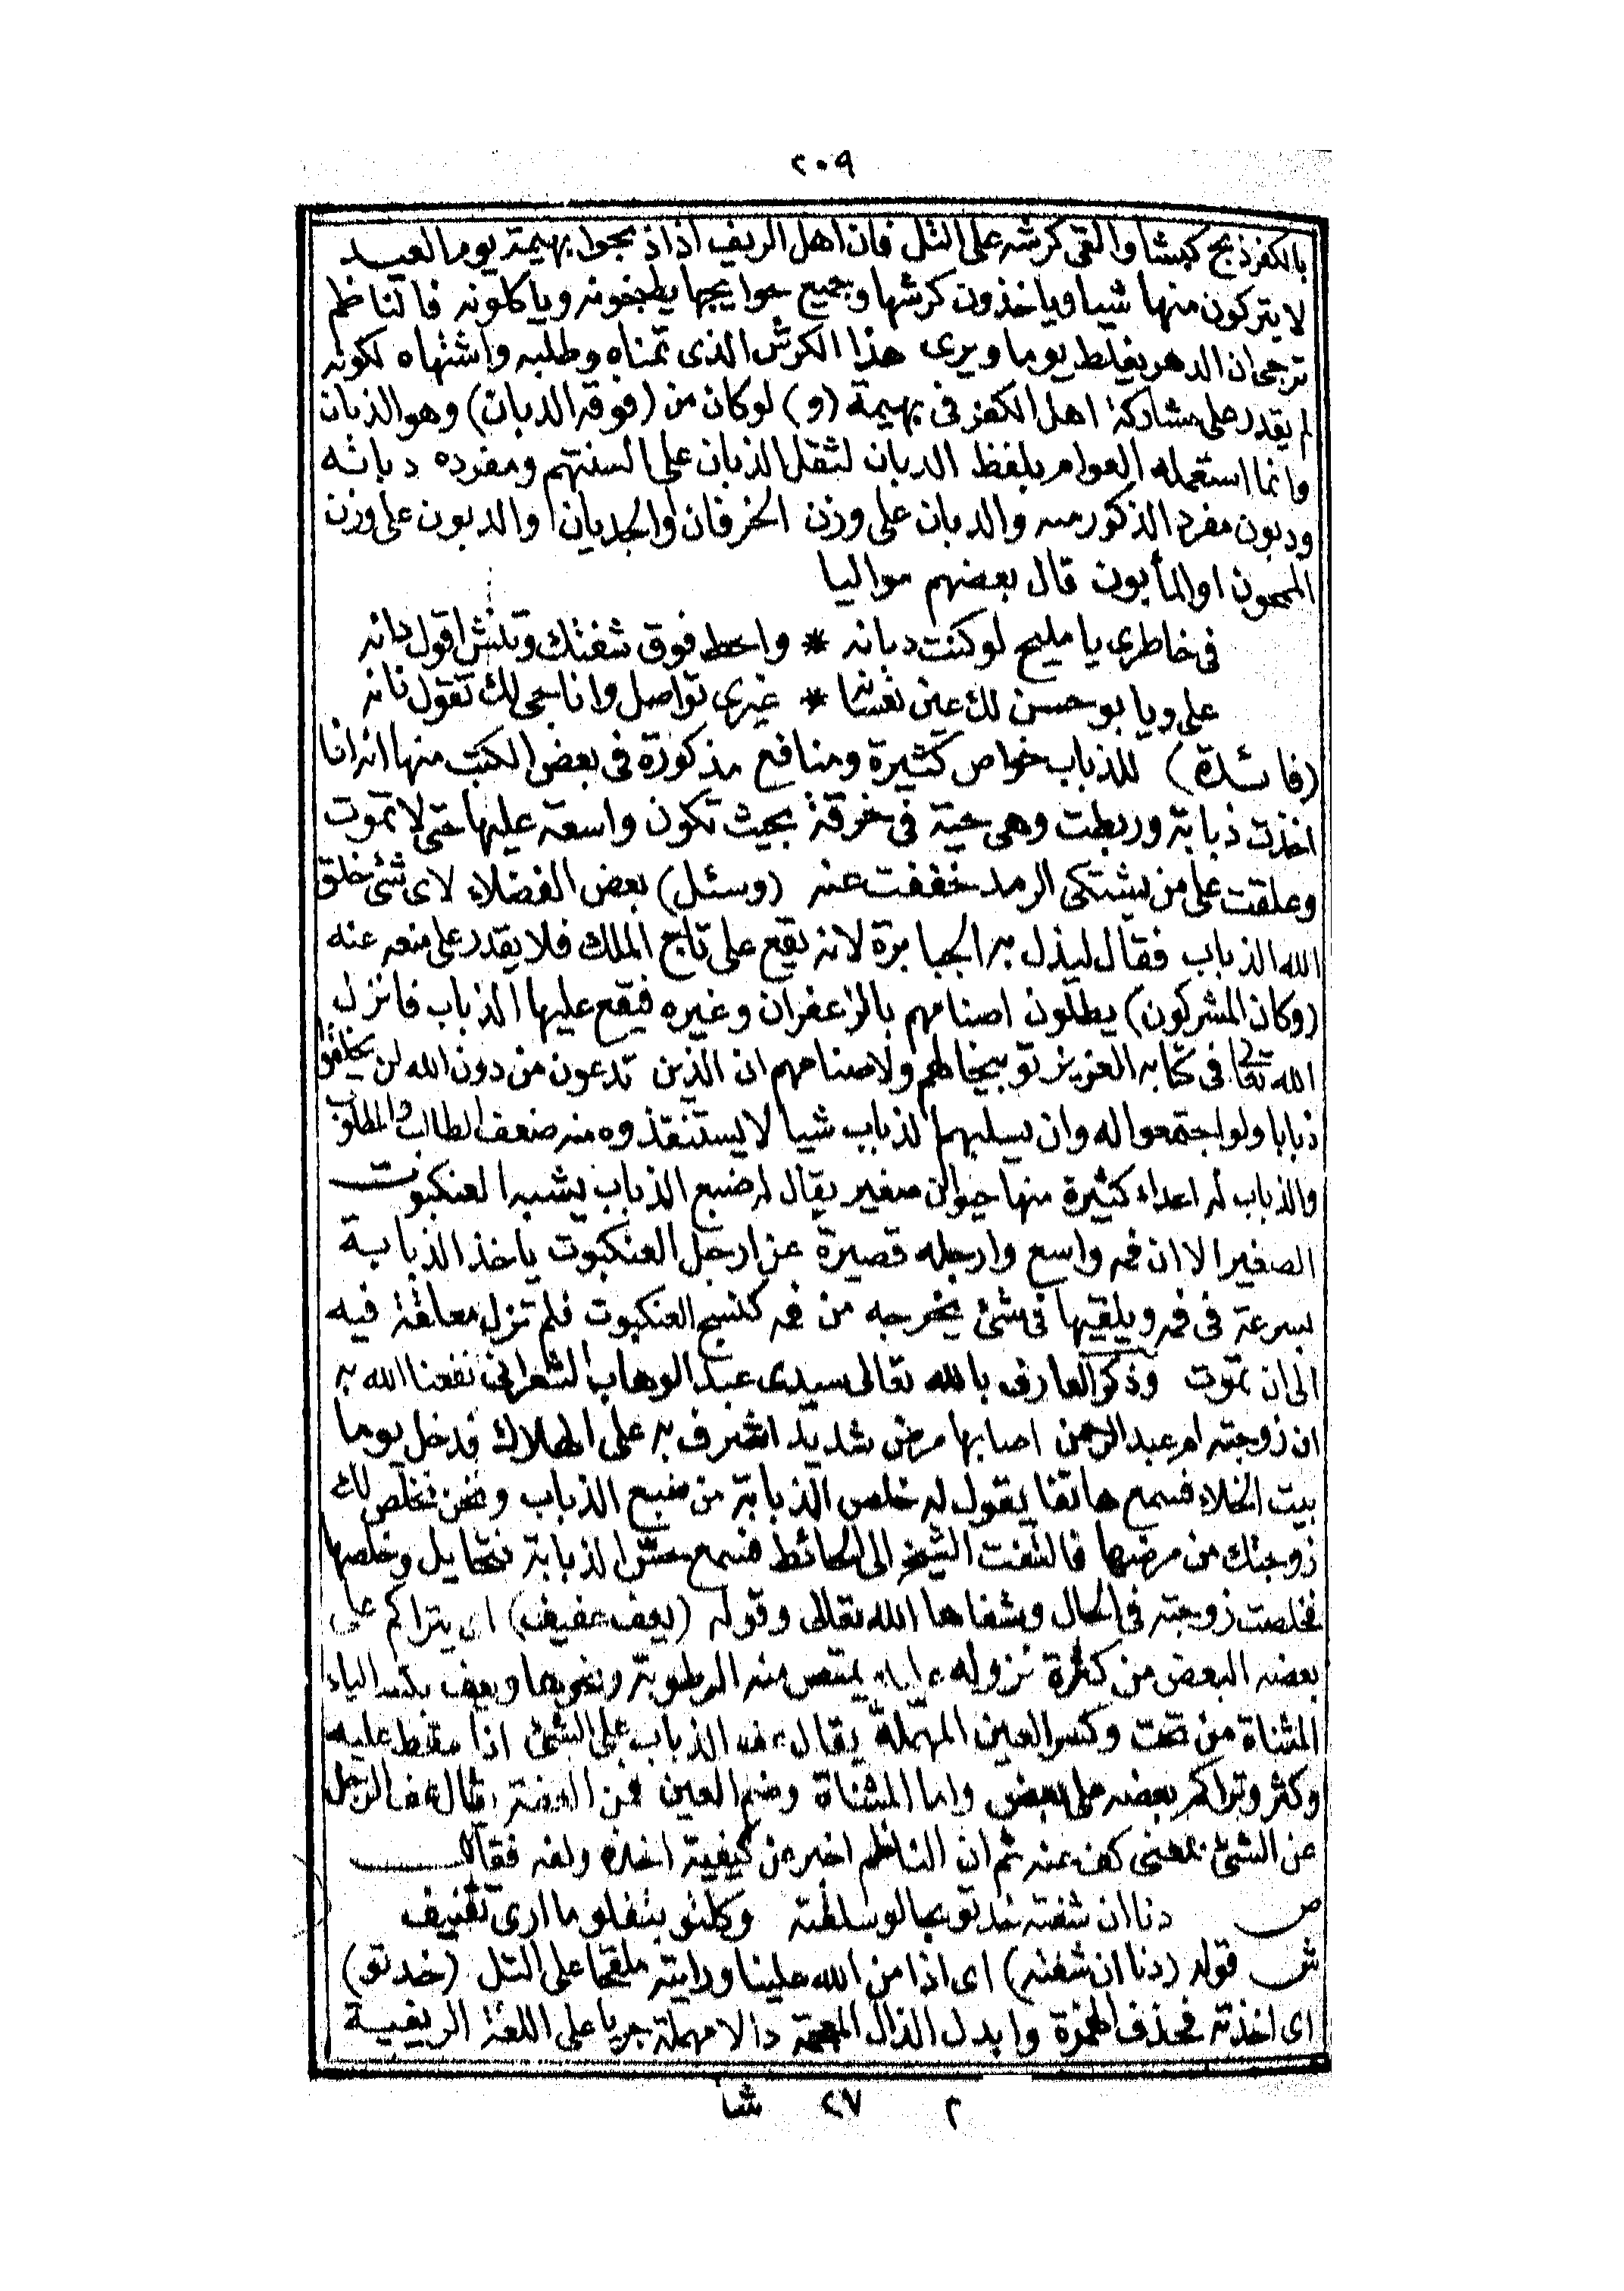 ٢٠٩
بالكفر ذبح كبشا والقى كرشه على التل فان اهل الريف اذا ذبحوا بهيمة يوم العيد
لا يتركون منها شيا وياخذون كرشها وجميع حوايجها يطبخونه وياكلونه فالناظم
ترجى ان الدهر يغلط يوما ويرى هذا الكرش الذى تمناه وطلبه واشتهاه لكونه
لم يقدر على مشاركة اهل الكفر فى بهيمة (و) لو كان من (فوقه الدبان) وهو الذبان
وانما استعمله العوام بلفظ الدبان لثقل الذبان على السنتهم ومفرده دبانه
ودبون مفرد الذكور منه والدبان على وزن الخرفان او الجديان والدبون على وزن
المجون او المأبون قال بعضهم مواليا
فى خاطرى يا مليح لو كنت دبانه * واحط فوق شفتك وتنش اقول دانه
على ويا بو حسن لك عين نعسانه * غيرى تواصل وانا جى لك تقول نانه
(فائدة) للذباب خواص كثيرة ومنافع مذكورة فى بعض الكتب منها انه اذا
اخذت ذبابة وربطت وهى حية فى خرقة بحيث تكون واسعة عليها حتى لا تموت
وعلقت على من يشتكى الرمد خففت عنه (وسئل) بعض الفضلاء لاى شئ خلق
الله الذباب فقال ليذل به الجبابرة لانه يقع على تاج الملك فلا يقدر على منعه عنه
(وكان المشركون) يطلون اصنامهم بالزعفران وغيره فيقع عليها الذباب فانزل
الله تعالى فى كتابه العزيز توبيخا لهم ولاصنامهم ان الذين تدعون من دون الله لن يخلقوا
ذبابا ولو اجتمعوا له وان يسلبهم الذباب شيا لا يستنقذوه منه ضعف الطالب والمطلوب
والذباب له اعداء كثيرة منها حيوان صغير يقال له ضبع الذباب يشبه العنكبوت
الصغير الا ان فمه واسع وارجله قصيرة عن ارجل العنكبوت ياخذ الذبابة
بسرعة فى فمه ويلقيها فى شئ يخرجه من فمه كنسج العنكبوت فلم تزل معلقة فيه
الى ان تموت وذكر العارف بالله تعالى سيدى عبد الوهاب الشعرانى نفعنا الله به
ان زوجته ام عبد الرحمن اصابها مرض شديد اشرف به على الهلاك فدخل يوما
بيت الخلاء فسمع هاتفا يقول له خلص الذبابة من ضبع الذباب ونحن نخلص لك
زوجتك من مرضها فالتفت الشيخ الى الحائط فسمع حس الذبابة فتحايل وخلصها
فخلصت زوجته فى الحال وشفاها الله تعالى وقوله (يعف عفيف) اى يتراكم على
بعضه البعض من كثرة نزوله يمتص منه الرطوبة ونحوها ويعف بكسر الياء
المثناة من تحت وكسر العين المهملة يقال عف الذباب على الشئ اذا سقط عليه
وكثر وتراكم بعضه على بعض واما المثناة وضم العين فمن العفة يقال عف الرجل
عن الشئ بمعنى كف عنه ثم ان الناظم اخبر عن كيفية اخذه ولفه فقال
ص دنا ان شفته خدتو بحالو سلطته وكلتو بتفلو ما ارى تقنيف
ش قوله (دنا ان شفته) اى اذا من الله علينا ورايته ملقحا على التل (خدتو)
اى اخذته فحذف الهمزة وابدل الذال المعجمة دالا مهملة جريا على اللغة الريفية
٢ ٢٧ شا